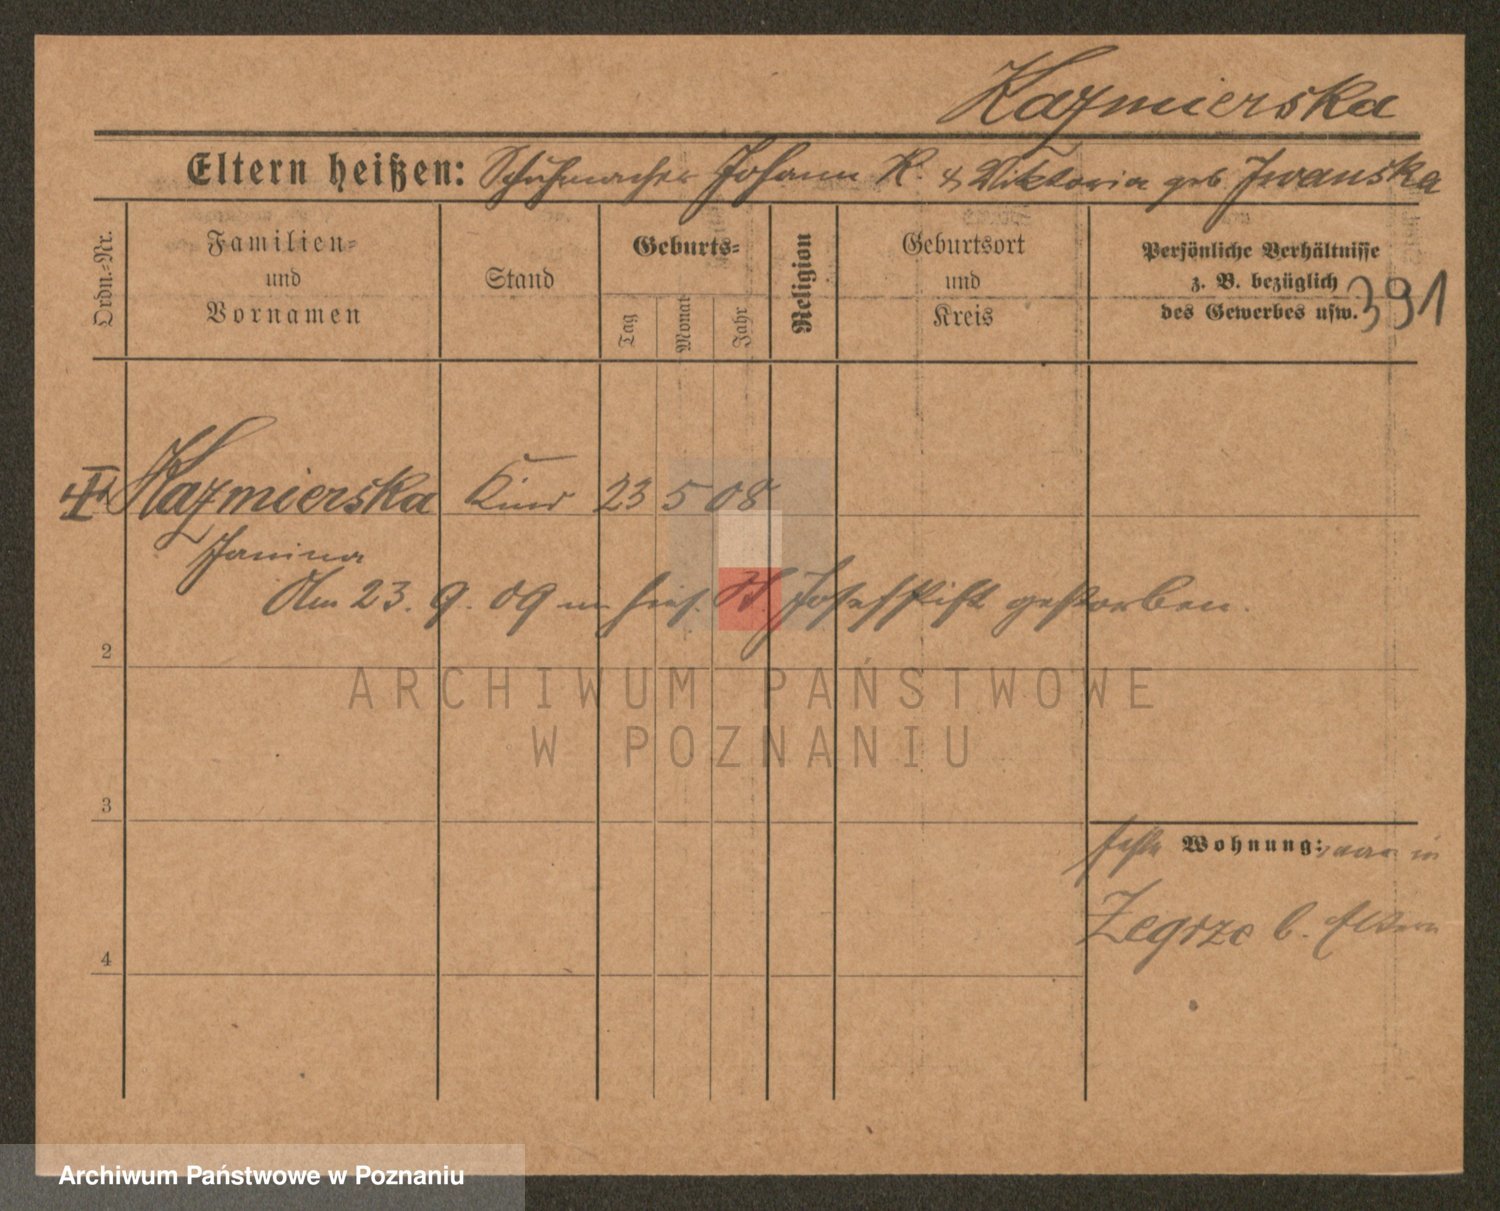 Kazmierska
Eltern heißen: Schuhmacher Johann K. & Viktoria geb Iwanska
Ordn.-Nr.
Familien-
und
Vornamen
Stand
Geburts-
Tag
Monat
Jahr
Religion
Geburtsort
und
Kreis
Persönliche Verhältnisse
z. B. bezüglich
des Gewerbes usw.
391
Kazmierska Kind 23 5 08
Janina
Am 23. 9. 09 im hies. St. Josefstift gestorben.
2
3
4
Wohnung:
in
Zegrze b. Eltern
ARCHIWUM PAŃSTWOWE
W POZNANIU
Archiwum Państwowe w Poznaniu